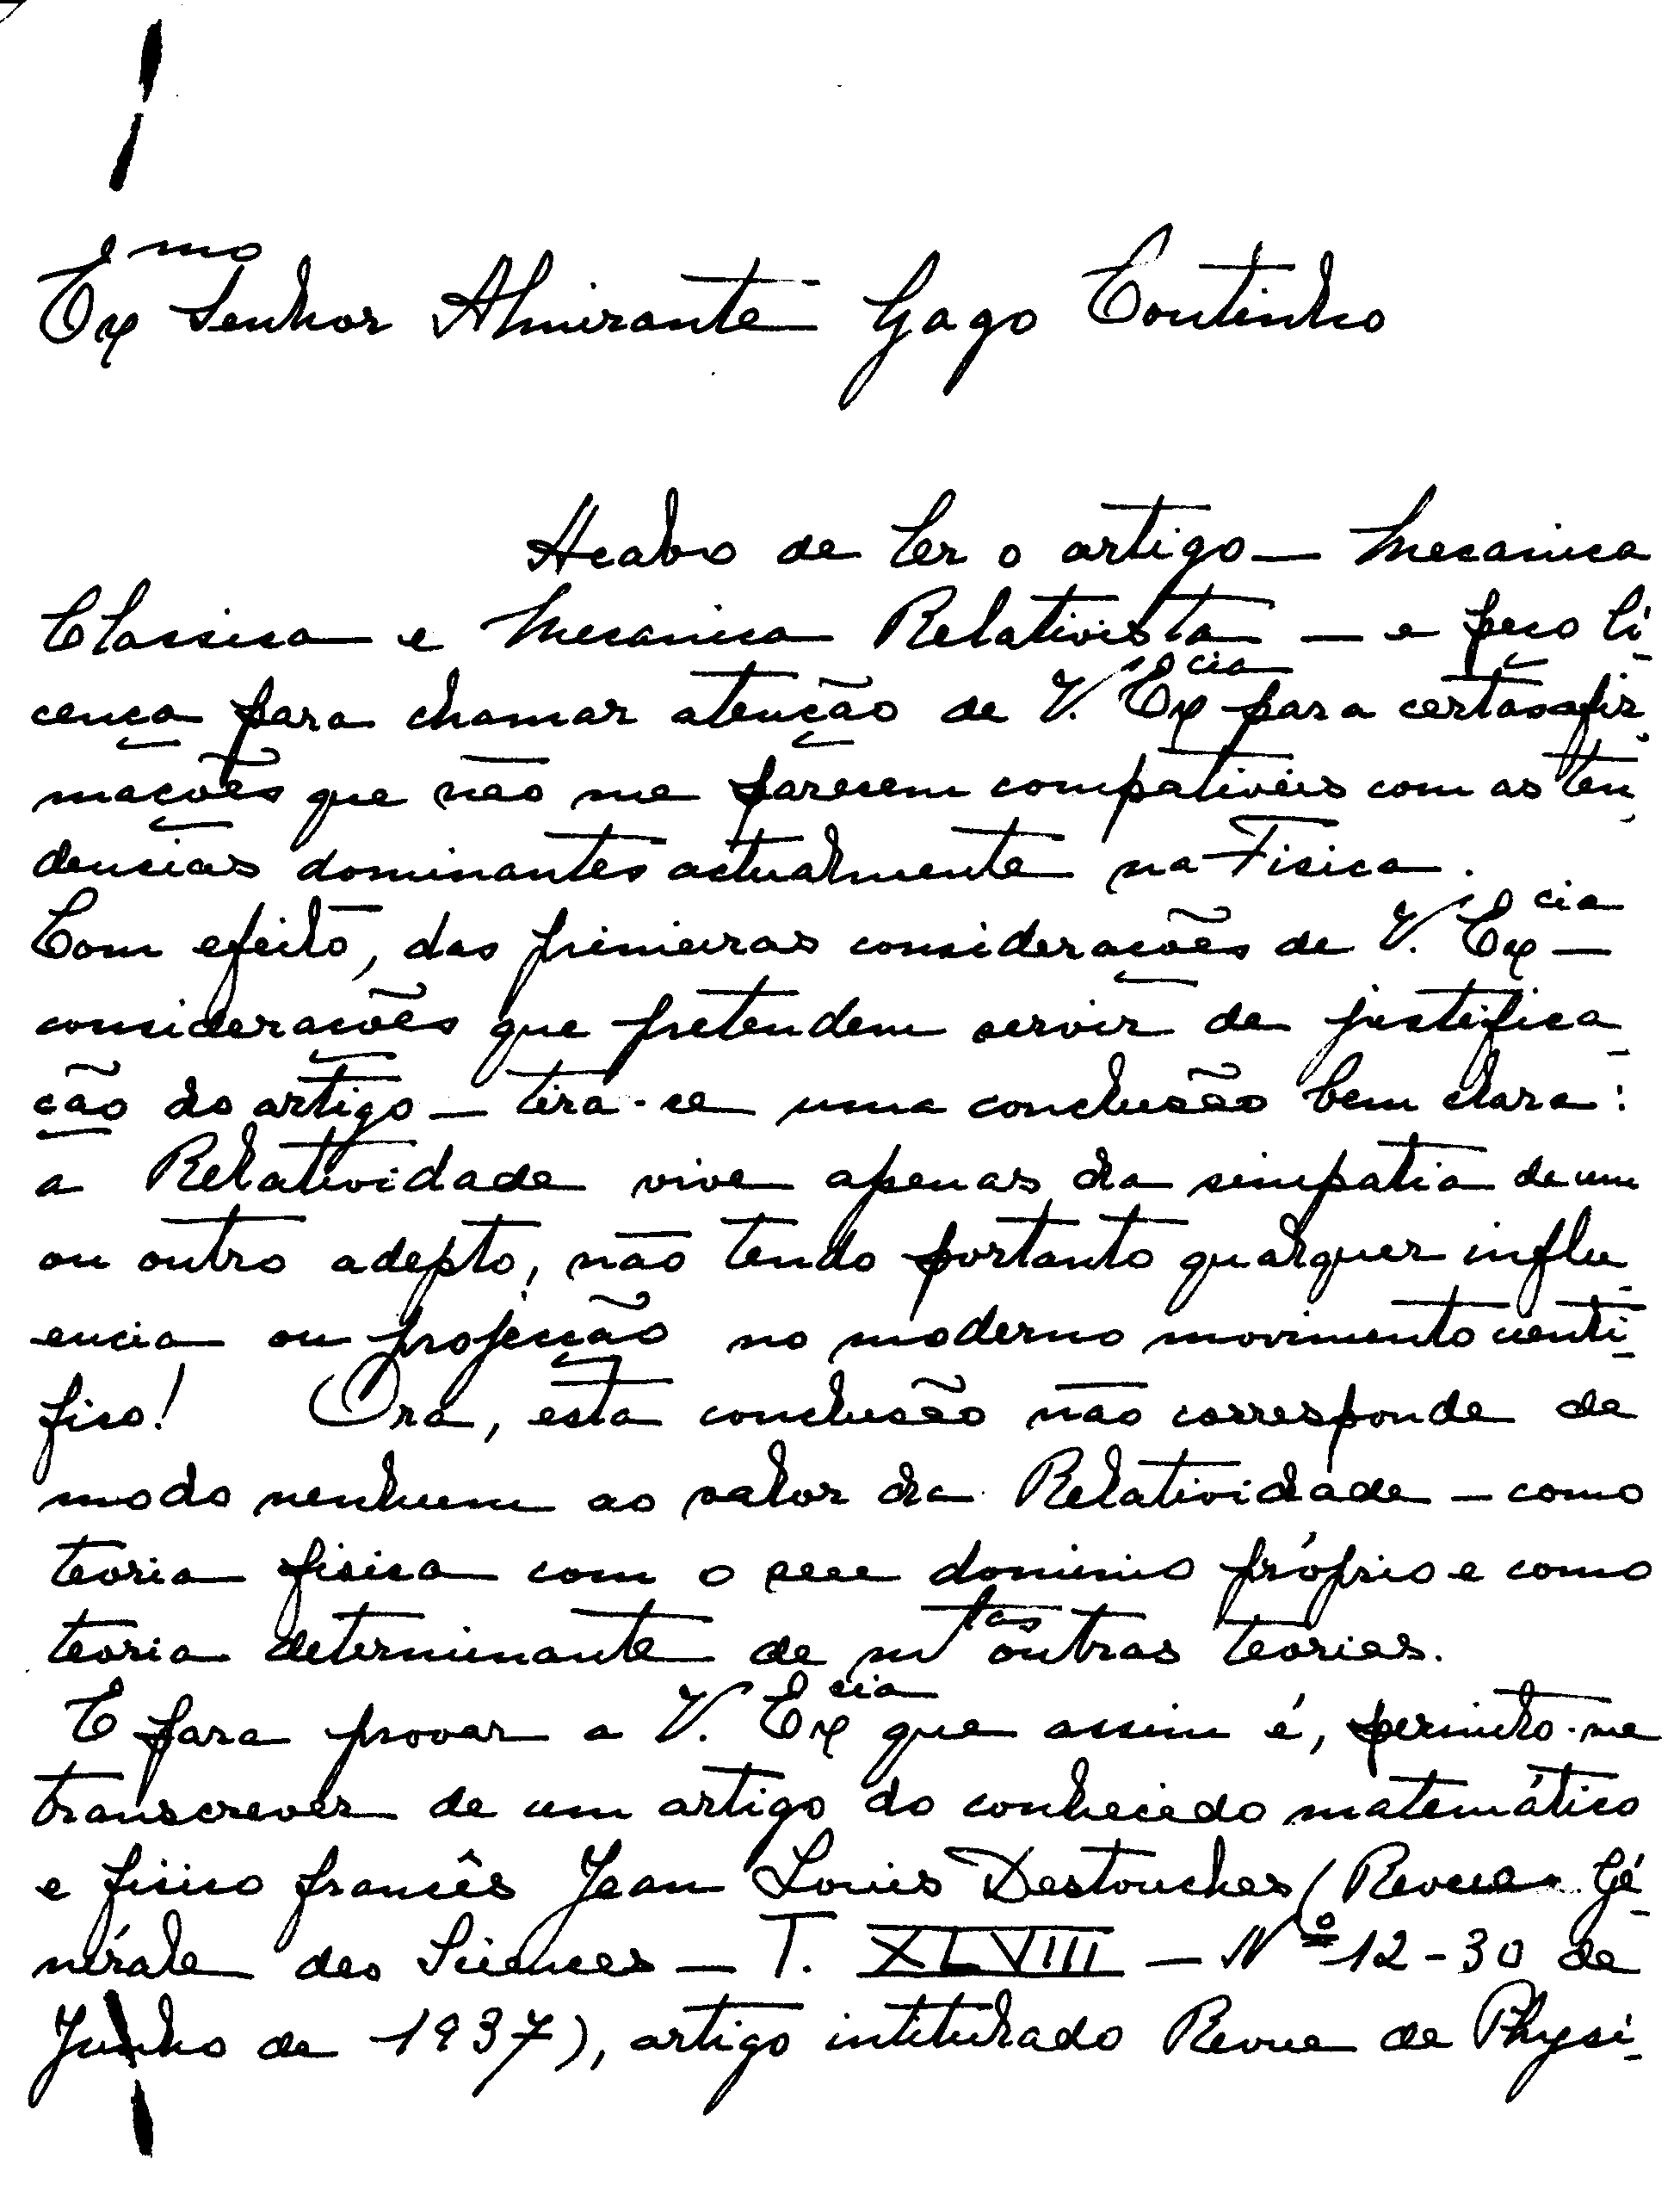 Ex^mo Senhor Almirante Gago Coutinho
Acabo de ler o artigo — Mecanica
Classica e Mecanica Relativista — e peço li-
cença para chamar atenção de V. Ex^cia para certas afir-
mações que não me parecem compativeis com as ten-
dencias dominantes actualmente na Fisica.
Com efeito, das primeiras considerações de V. Ex^cia —
considerações que pretendem servir de justifica-
ção do artigo — tira-se uma conclusão bem clara:
a Relatividade vive apenas da simpatia de um
ou outro adepto, não tendo portanto qualquer influ-
encia ou projecção no moderno movimento cienti-
fico! Ora, esta conclusão não corresponde de
modo nenhum ao valor da Relatividade — como
teoria fisica com o seu dominio próprio e como
teoria determinante de m^tas outras teorias.
E para provar a V. Ex^cia que assim é, permito-me
transcrever de um artigo do conhecido matemático
e fisico francês Jean Louis Destouches (Revue Gé-
nérale des Sciences — T. XLVIII — Nº 12 - 30 de
Junho de 1937), artigo intitulado Revue de Physi-